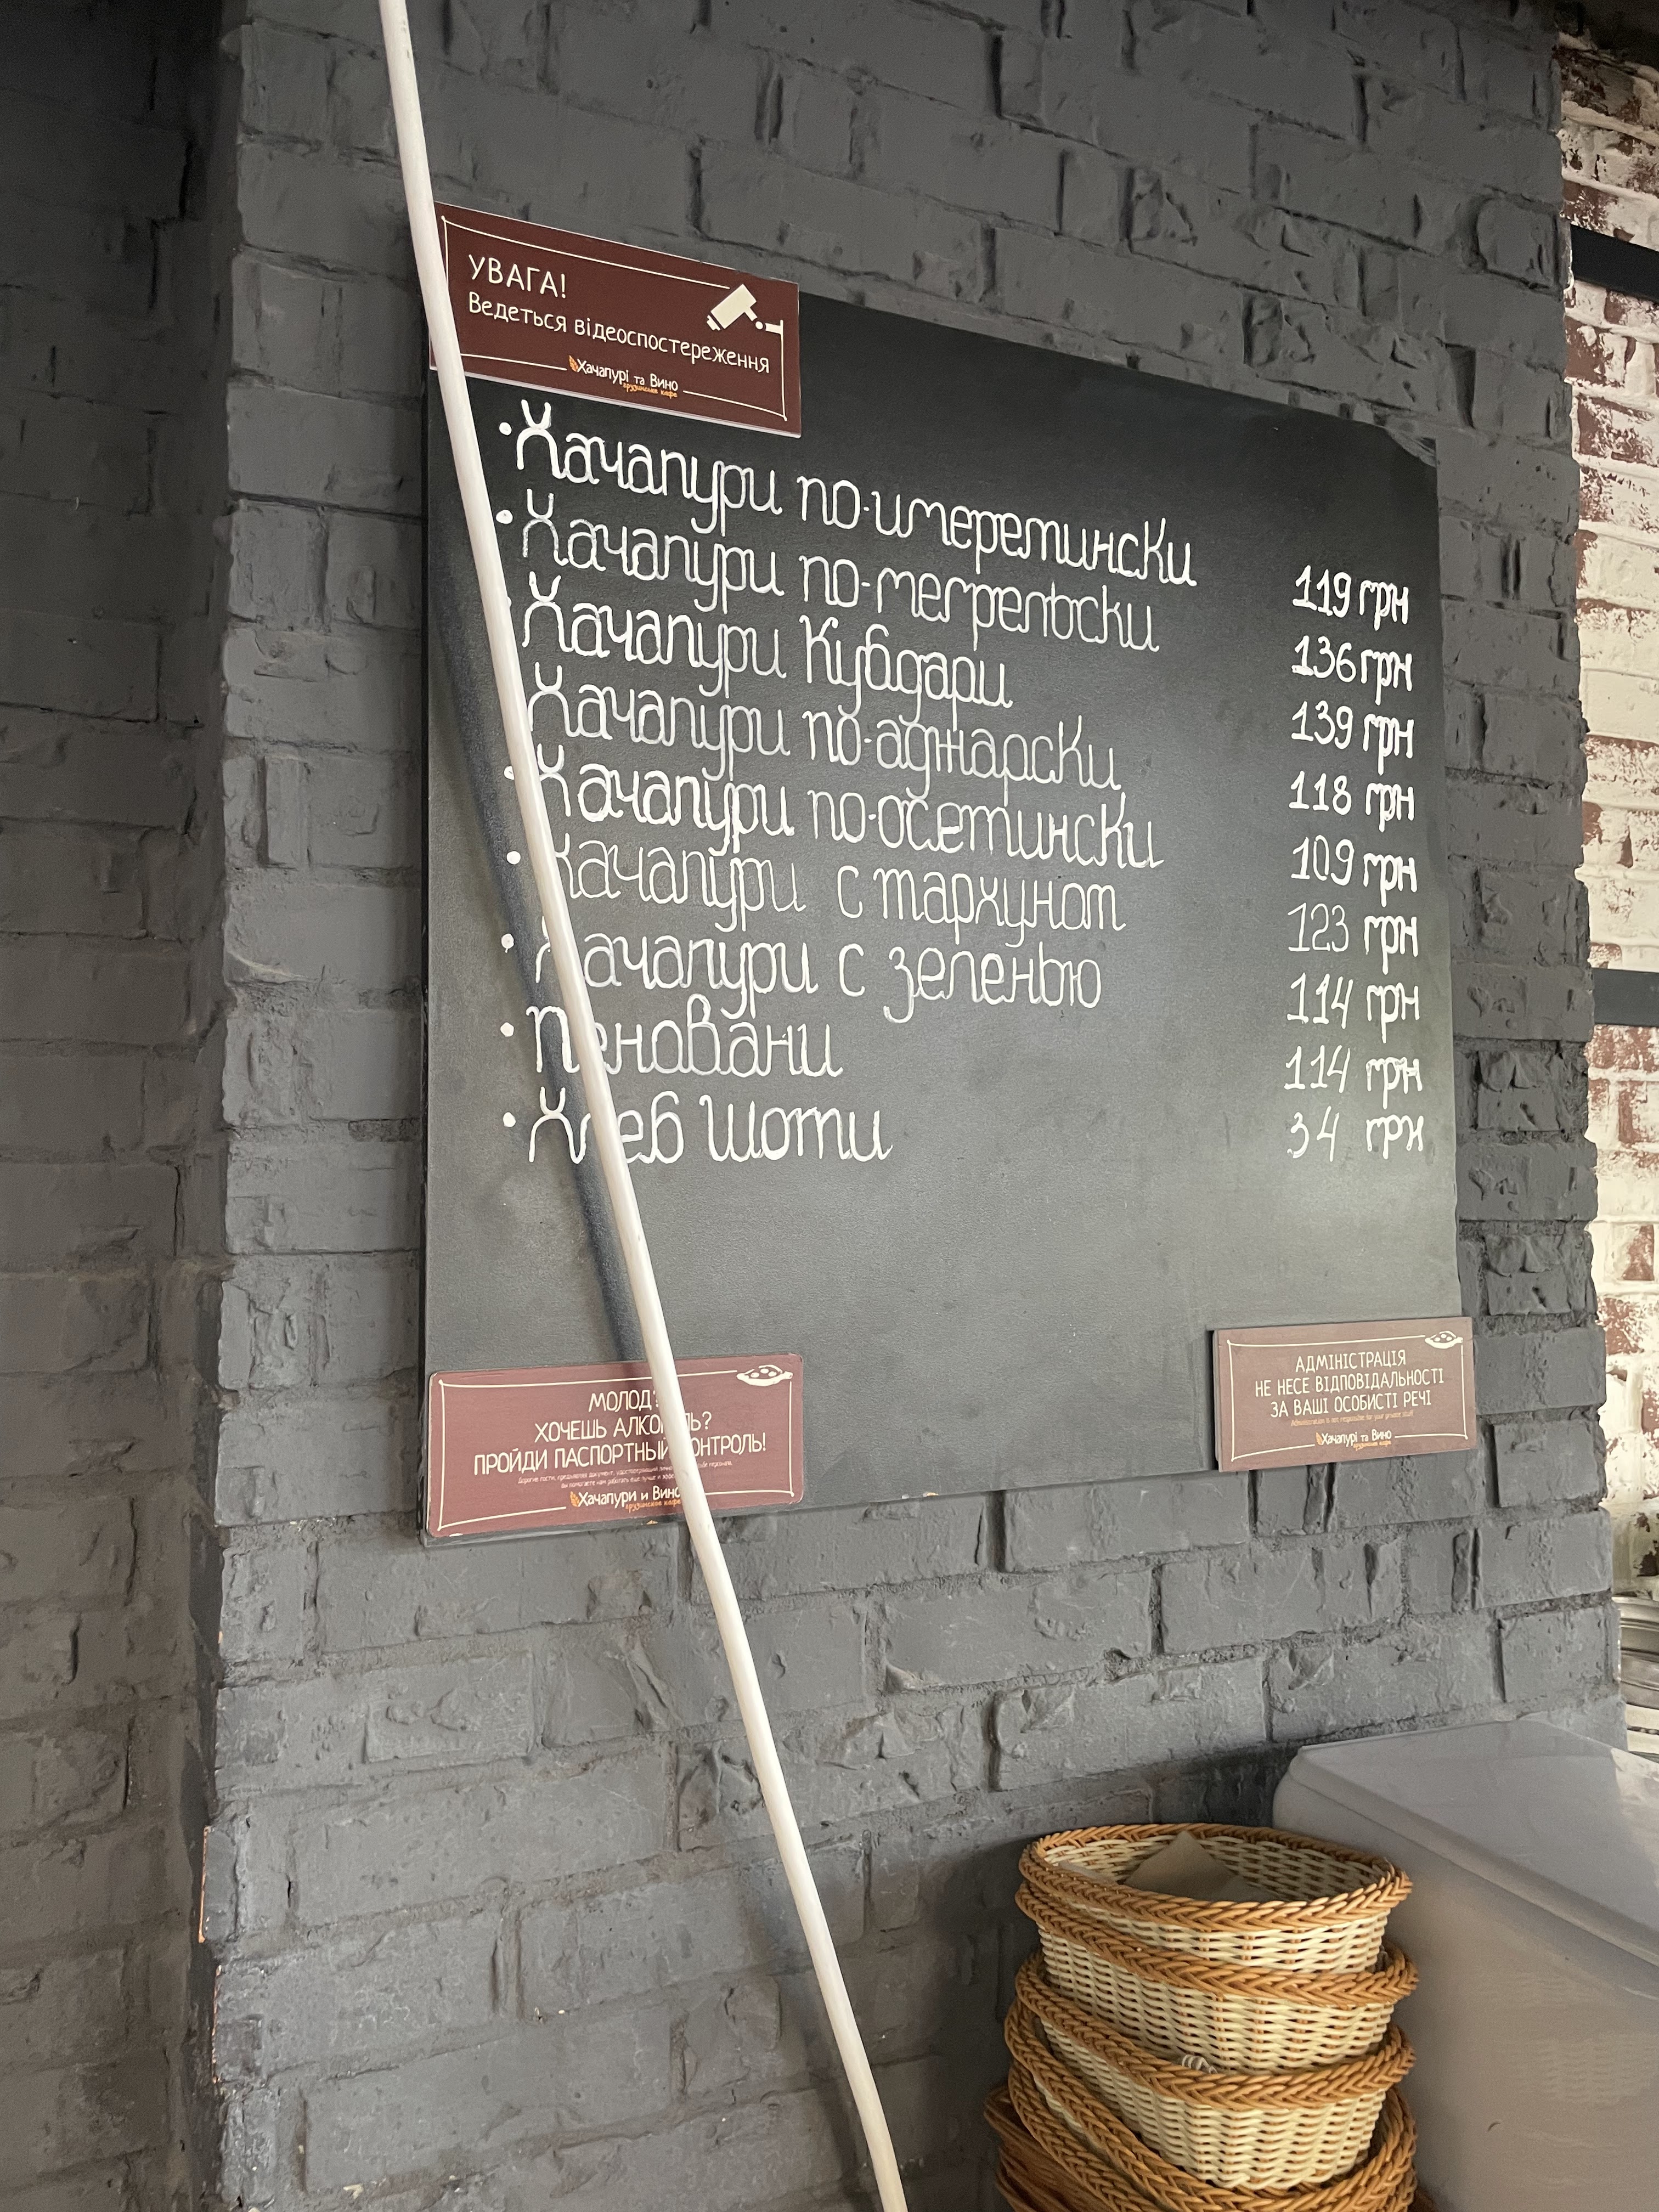 УВАГА!
Ведеться відеоспостереження
Хачапурі та Вино
грузинське кафе
• Хачапури по-имеретински 119 грн
• Хачапури по-мегрельски 136 грн
Хачапури Кубдари 139 грн
Хачапури по-аджарски 118 грн
• Хачапури по-осетински 109 грн
• Хачапури с тархуном 123 грн
• Хачапури с зеленью 114 грн
• Пеновани 114 грн
• Хлеб Шоти 34 грн
МОЛОД?
ХОЧЕШЬ АЛКОГОЛЬ?
ПРОЙДИ ПАСПОРТНЫЙ КОНТРОЛЬ!
Хачапури и Вино
грузинское кафе
АДМІНІСТРАЦІЯ
НЕ НЕСЕ ВІДПОВІДАЛЬНОСТІ
ЗА ВАШІ ОСОБИСТІ РЕЧІ
Administration is not responsible for your private stuff
Хачапурі та Вино
грузинське кафе